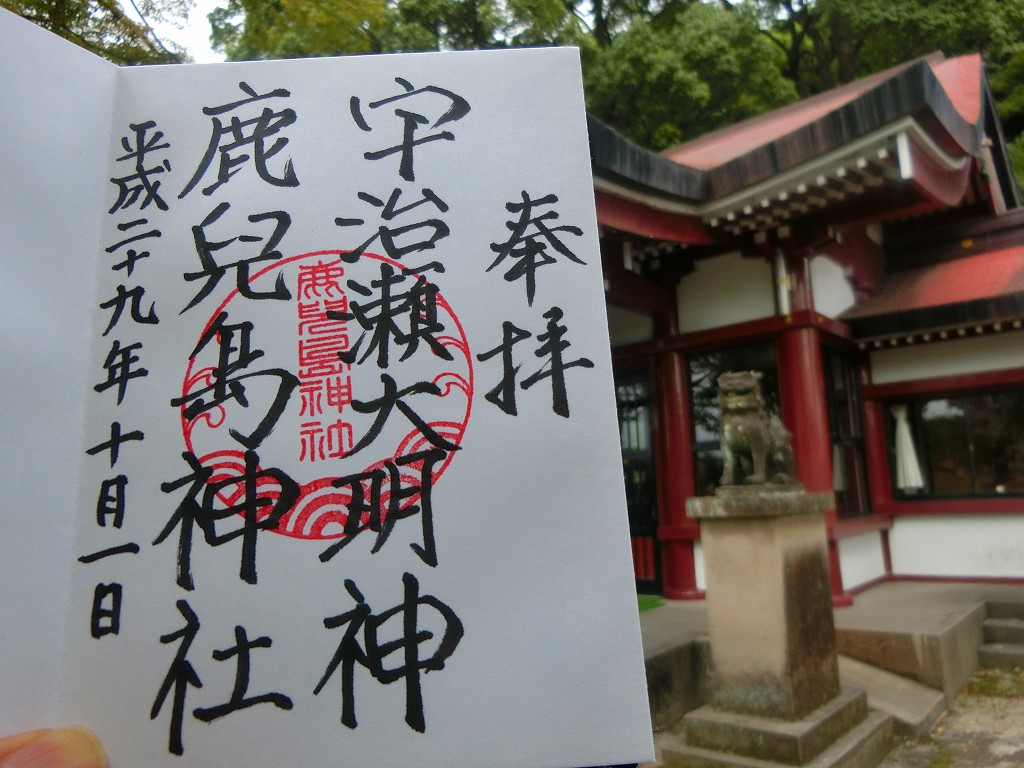 奉拝
宇治瀬大明神
鹿兒島神社
鹿兒島神社
平成二十九年十月一日